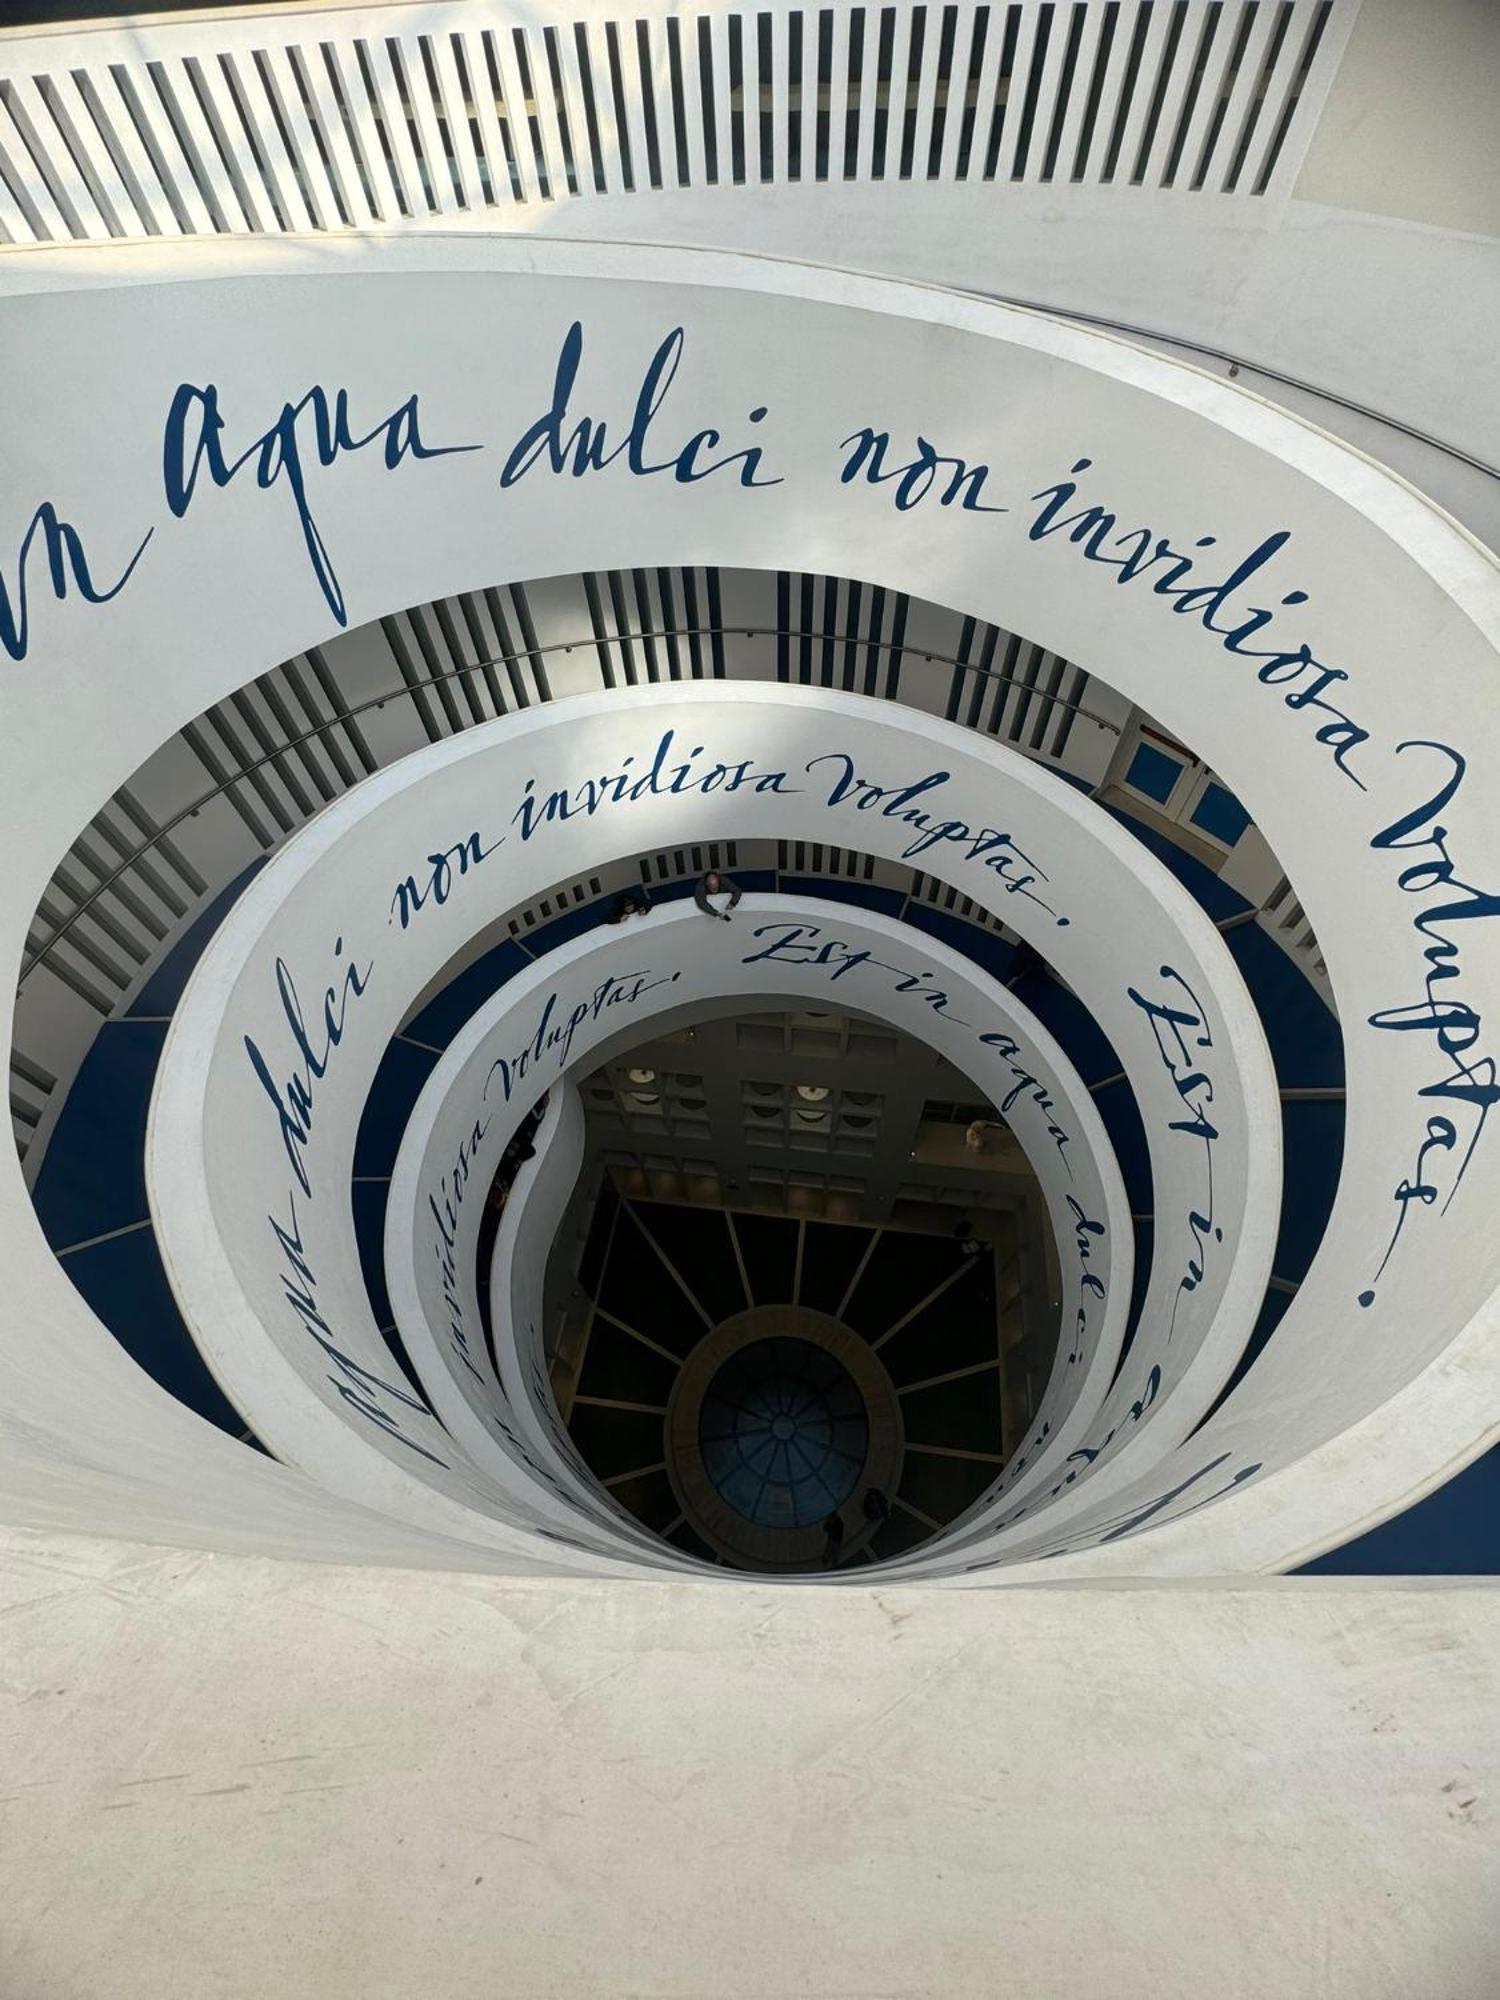 in aqua dulci non invidiosa voluptas.
aqua dulci non invidiosa voluptas. Est in aqua
invidiosa voluptas. Est in aqua dulci non